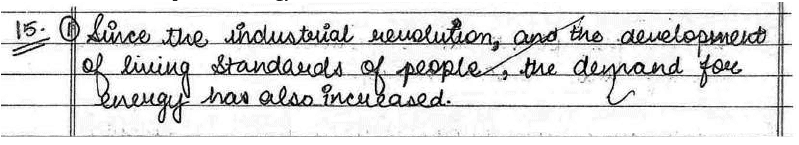 15. ① Since the industrial revolution, and the development
of living standards of people, the demand for
energy has also increased.